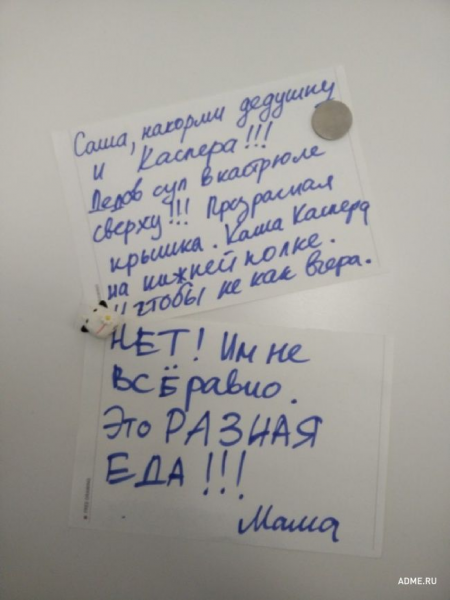 Саша, накорми дедушку
и Каспера!!!
Дедов суп в кастрюле
сверху!!! Прозрачная
крышка. Каша Каспера
на нижней полке.
И чтобы не как вчера.
НЕТ! Им не
ВСЁ равно.
Это РАЗНАЯ
ЕДА!!!
Мама
ADME.RU